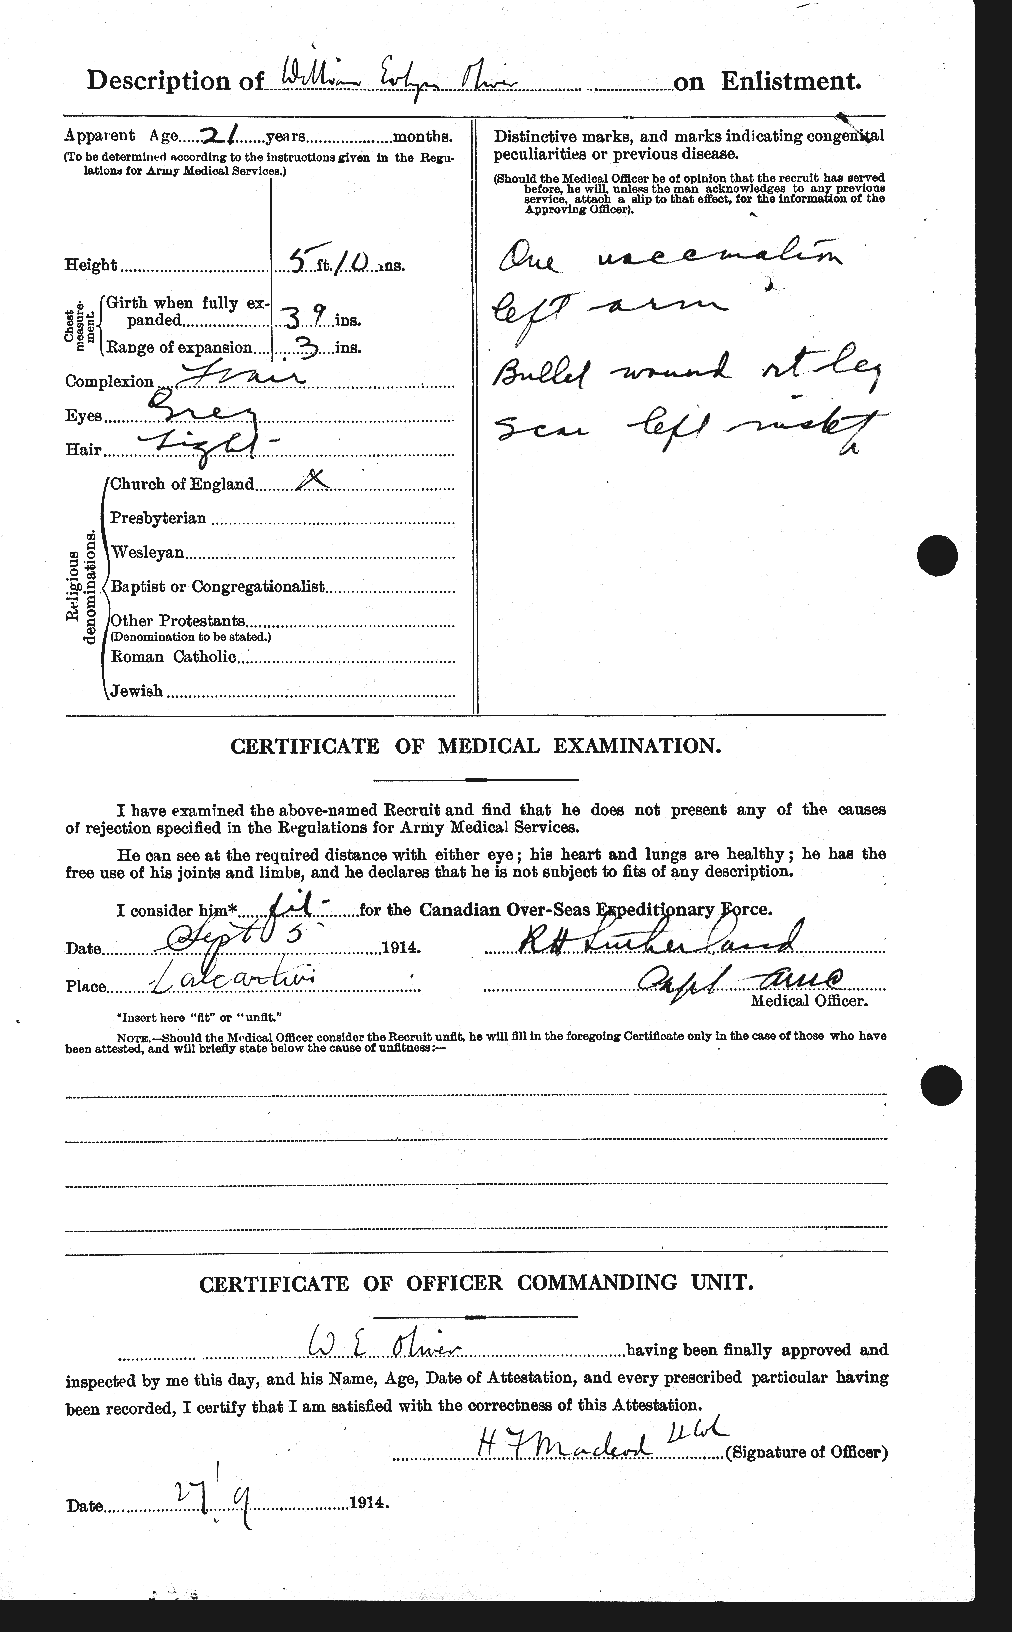 Description of William Evlyn Oliver on Enlistment.
Apparent Age 21 years months.
(To be determined according to the instructions given in the Regu-
lations for Army Medical Services.)
Height 5 ft. 10 ins.
Chest measurement.
Girth when fully ex-
panded 39 ins.
Range of expansion 3 ins.
Complexion Fair
Eyes Grey
Hair Light
Religious denominations.
Church of England X
Presbyterian
Wesleyan
Baptist or Congregationalist
Other Protestants
(Denomination to be stated.)
Roman Catholic
Jewish
Distinctive marks, and marks indicating congenital
peculiarities or previous disease.
(Should the Medical Officer be of opinion that the recruit has served
before, he will, unless the man acknowledges to any previous
service, attach a slip to that effect, for the information of the
Approving Officer).
One vaccination
left arm
Bullet wound rt leg
Scar left
CERTIFICATE OF MEDICAL EXAMINATION.
I have examined the above-named Recruit and find that he does not present any of the causes
of rejection specified in the Regulations for Army Medical Services.
He can see at the required distance with either eye; his heart and lungs are healthy; he has the
free use of his joints and limbs, and he declares that he is not subject to fits of any description.
I consider him* fit for the Canadian Over-Seas Expeditionary Force.
Date Sept 5 1914.
R H Sutherland
Place Valcartier
Capt AMC
Medical Officer.
*Insert here "fit" or "unfit."
NOTE.—Should the Medical Officer consider the Recruit unfit, he will fill in the foregoing Certificate only in the case of those who have
been attested, and will briefly state below the cause of unfitness:—
CERTIFICATE OF OFFICER COMMANDING UNIT.
W E Oliver having been finally approved and
inspected by me this day, and his Name, Age, Date of Attestation, and every prescribed particular having
been recorded, I certify that I am satisfied with the correctness of this Attestation.
H F Macleod Lt Col (Signature of Officer)
Date 27/9 1914.